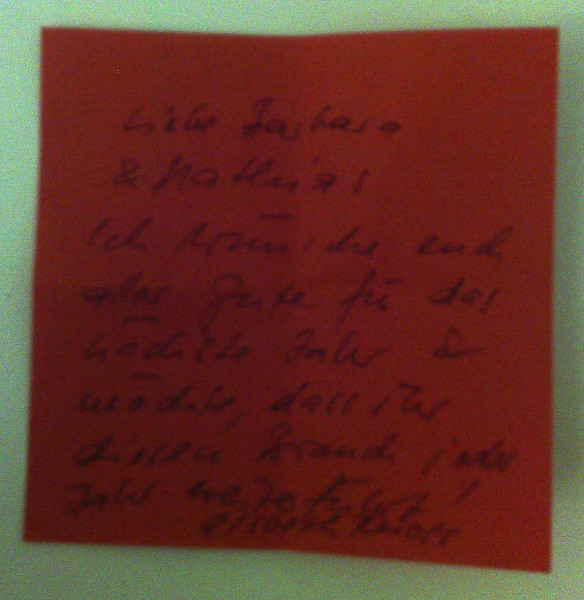 Liebe Barbara
& Mathias
Ich wünsche euch
alles Gute für das
nächste Jahr &
möchte, dass ihr
diesen Brauch jedes
Jahr weiterführt!